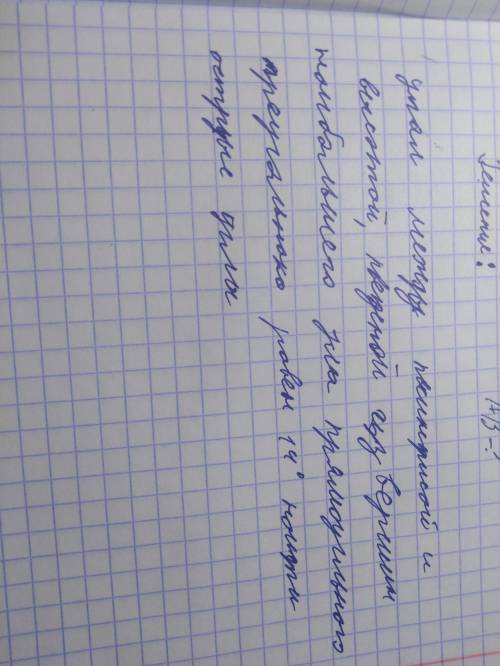 Решение:
АВ-?
угол между биссектрисой и
высотой, проведенной из вершины
наибольшего угла прямоугольного
треугольника равен 14° найти
острые углы